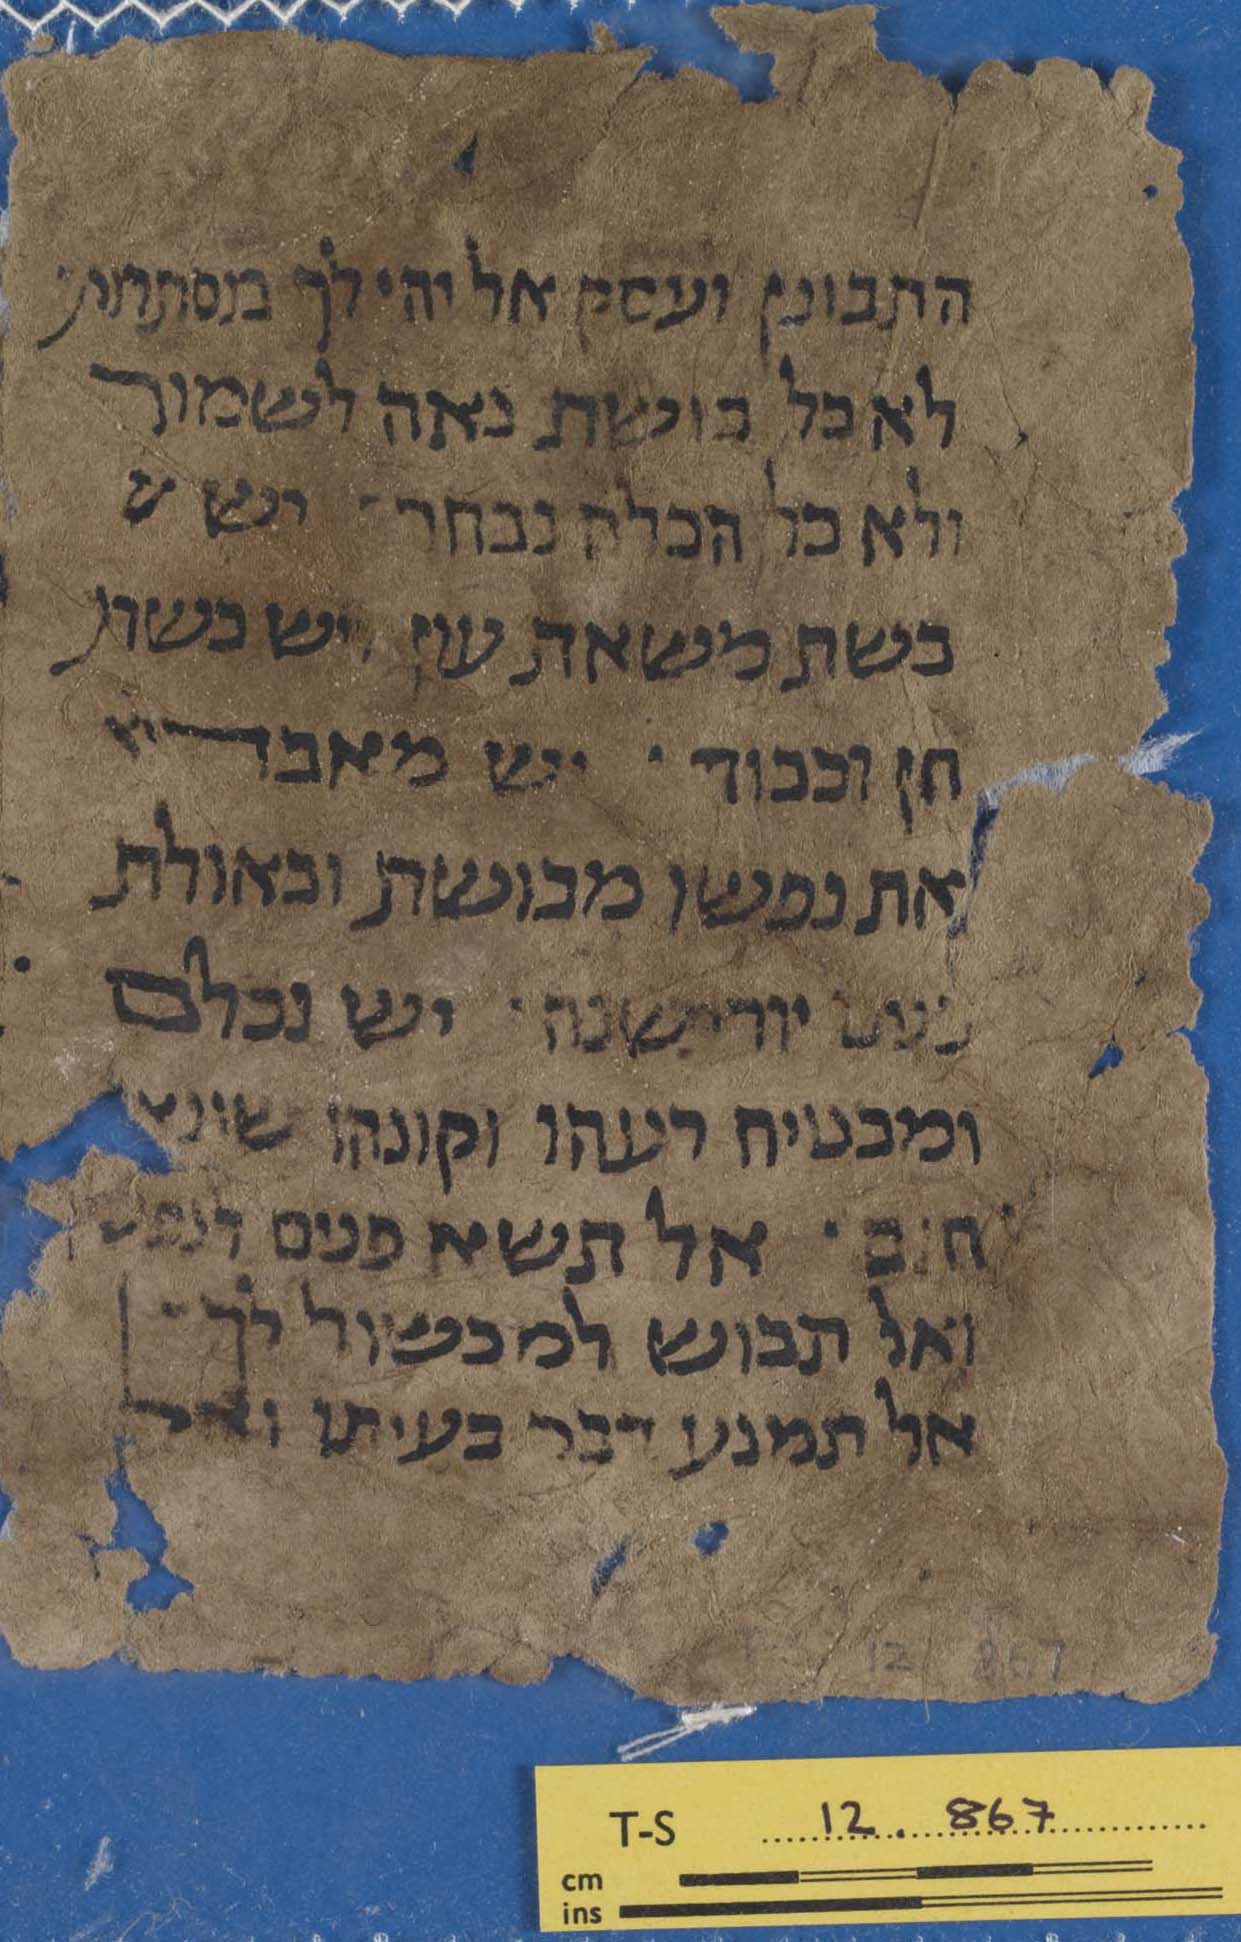 התבונן ועסק אל יהי לך במסתרות
לא כל בושת נאה לשמור
ולא כל הכלם נבחר יש ש
בשת משאת עון יש בשת
חן וכבוד יש מאבד
את נפשו מבושת ובאולת
פנים יורישנה יש נכלם
ומבטיח רעהו וקונהו שונא
חנם אל תשא פנים לנפשך
ואל תבוש למכשול לך
אל תמנע דבר בעיתו ואל
12 867
T-S 12.867
cm
ins